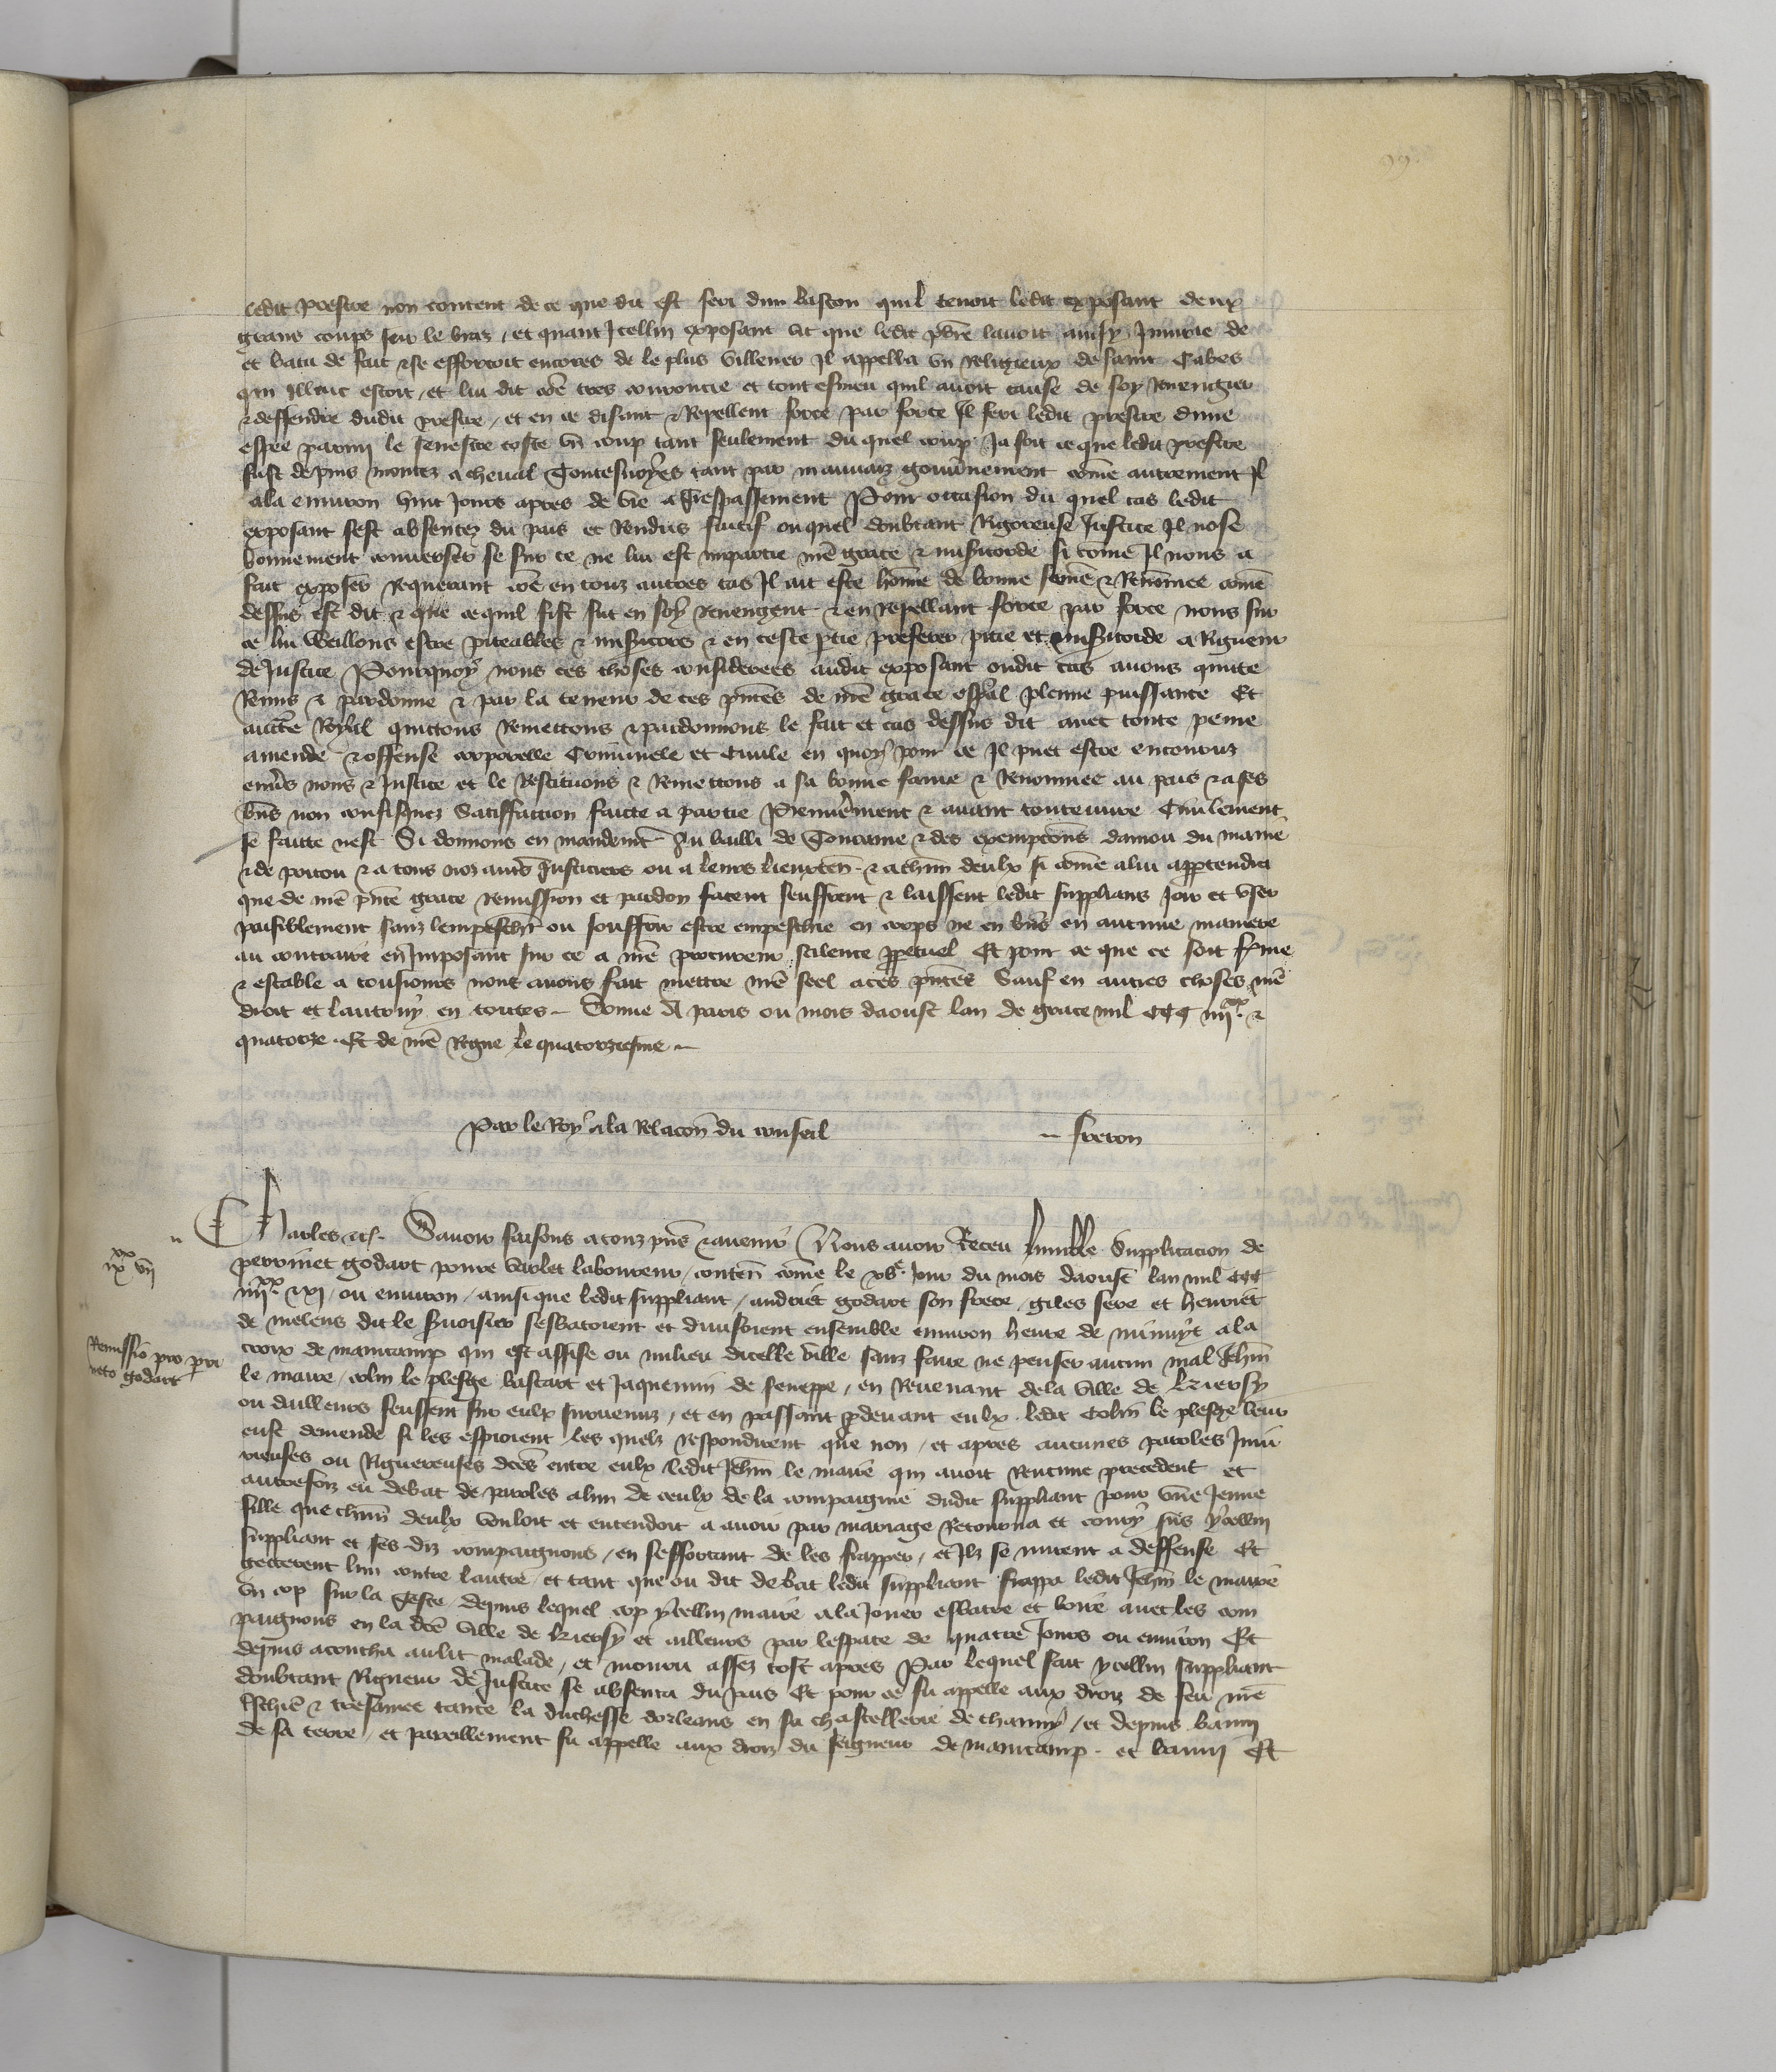 ledit prestre non content de ce que dit est feri dun baston quil tenoit ledit exposant deux
grans coups sur le bras / et quant Icellui exposant vit que ledit pbrē lavoit ainsy Iniurie de
et batu de fait & se efforcoit encores de le plus villener Il appella un Religieux de saint
qui Illuc estoit / et lui dit cōē tres courroucie et tout esmeu quil avoit cause de soy Revengier
& deffendre dudit prestre / et en ce disant & Repellent force par force Il feri ledit prestre dune
espee parmi le senestre coste un coup tant seulement du quel coup Ja soit ce que ledit prestre
fust depuis montez a cheval Toutesvoyes tant par mauvaiz gouvnement cōme autrement Il
ala environ huit Jours apres de vie a trespassement Pour occasion du quel cas ledit
exposant sest absentez du pais et Rendus fuitif ouquel doubtant Rigoreuse Justice Il nose
bonnement converser se sur ce ne lui est impartie nrē grace & misicorde si cōme Il nous a
fait exposer Requerant cōē en touz autres cas Il ait este hōme de bonne fame & Renōmee cōme
dessus est dit & que ce quil fist fut en soy Revengent & en repellant force par force nous sur
ce lui veillons estre piteables & misicors & en ceste ptie preferer pitie et misicorde a Rigueur
de Justice Pourquoy nous ces choses considerees audit exposant oudit cas avons quitte
Remis & pardonne & par la teneur de ces pntes de nrē grace espal plenne puissance Et
aucte Royal quittons Remettons & pardonnons le fait et cas dessus dit avec toute peine
amende & offense corporelle Criminele et Civile en quoy pour ce Il puet estre encouruz
envs nous & Justice et le Restituons & Remettons a sa bonne fame & Renommee au pais & a ses
bns non confisquez Satisfaction faicte a partie Premierement & avant toute euvre Civilement
se faitte nest Si donnons en mandemt Au bailli de Touraine & des exempcons danjou du maine
& de poitou & a tous noz autres Justiciers ou a leurs lieuxten & a chun deulx si cōme a lui apptendra
que de nrē pnte grace Remission et pardon facent seuffrent & laissent ledit suppliant Joir et user
paisiblement sanz lempeschr ou souffrir estre empeschie en corps ne en bns en aucune maniere
au contraire en Imposant sur ce a nrē procureur scilence ppetuel Et pour ce que ce soit ferme
& estable a tousjours nous avons fait mettre nrē seel a ces pntes Sauf en autres choses nrē
droit et lautruy en toutes - Donne A paris ou mois daoust lan de grace mil ccc iiiixx &
quatorze . Et de nrē Regne le quatorziesme -
Par le Roy a la Relacon du conseil - freron
Charles &c. Savoir faisons a touz pns & avenir Nous avoir Receu lumble Supplicacion de
xx
ix vii
perrinet godart povre varlet laboureur / conten cōme le xve Jour du mois daoust lan mil ccc
iiiixx & xi / ou environ / ainsi que ledit suppliant / andriet godart son frere / giles sere et henriet
de melens dit le sesbatoient et divisoient ensemble environ heure de mienuyt a la
Remissio pro per
neto godart
croix de manicamp qui est assise ou milieu dicelle ville sanz faire ne penser aucun mal Jehan
le maire / colin le plesge bastart et Jaquemin de seneppe / en Revenant de la ville de kiersy
ou dailleurs feussent sur eulx survenuz / et en passant pdevant eulx ledit Colin le plesge leur
eust demende si les espioient les quelz respondirent que non / et apres aucunes paroles Iniu
rieuses ou Riguereuses dces entre eulx ledit Jehan le maire qui avoit Rencune precedent et
autrefoiz eu debat de paroles a lun de ceulx de la compaignie dudit suppliant pour une Jeune
fille que chun deulx vouloit et entendoit a avoir par mariage Retourna et couru sus ycellui
suppliant et ses diz compaignons / en sefforcant de les frapper / et Ilz se mirent a deffense Et
getterent lun contre lautre / et tant que ou dit debat ledit suppliant frappa ledit Jehan le maire
un cop sur la teste depuis lequel cop ycellui maire ala Jouer esbatre et boire avec les com
paignons en la dce ville de kiersy et ailleurs par lespace de quatre Jours ou environ Et
depuis acoucha au lit malade / et mouru assez tost apres Par lequel fait ycellui suppliant
doubtant Rigueur de Justice se absenta du pais Et pour ce fu appelle aux droiz de feu nrē
treschie & tresamee tante la duchesse dorleans en sa chastellerie de chauny / et depuis banni
de sa terre / et pareillement fu appelle aux droiz du seigneur de manicamp . et banni Et